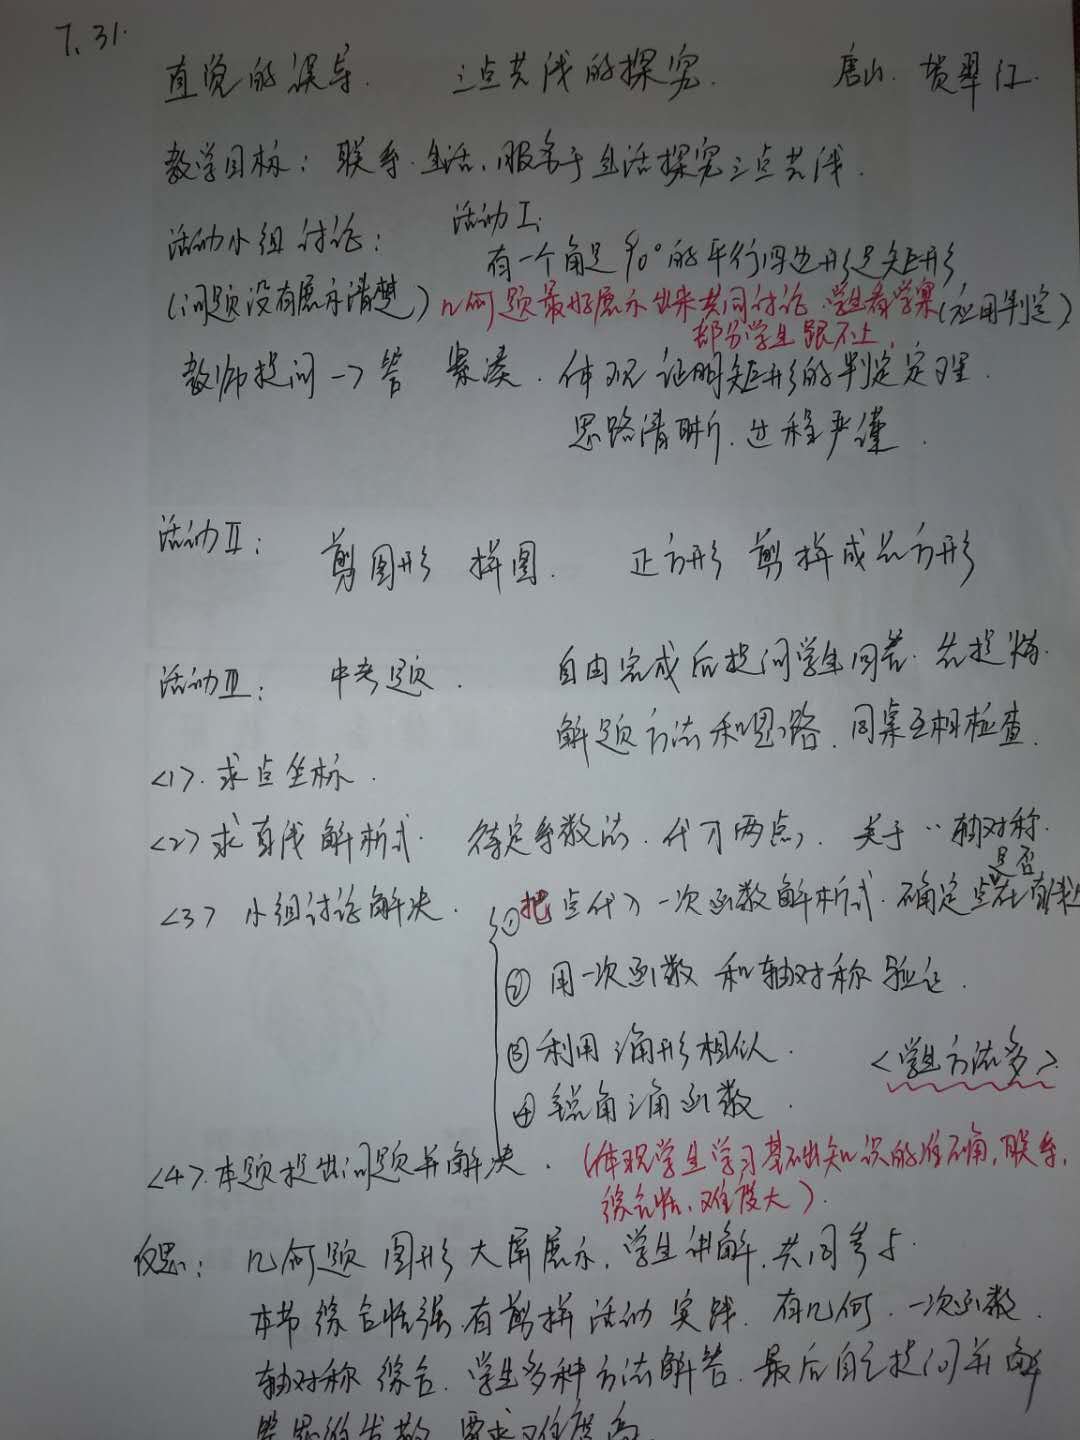 7.31.
直觉的误导. 三点共线的探究. 唐山. 贺翠红.
教学目标: 联系生活、服务于生活探究三点共线.
活动小组讨论: 活动Ⅰ:
有一个角是90°的平行四边形是矩形
(问题没有展示清楚) 几何题最好展示出来共同讨论. 学生看学案 (应用判定)
部分学生跟不上.
教师提问→答 紧凑. 体现证明矩形的判定定理.
思路清晰. 过程严谨.
活动Ⅱ: 剪图形 拼图. 正方形 剪拼成长方形
活动Ⅲ: 中考题. 自由完成后提问学生回答. 先提炼
解题方法和思路. 同桌互相检查.
<1>. 求点坐标.
<2> 求直线解析式. 待定系数法. 代入两点, 关于‥轴对称.
是否
<3> 小组讨论解决. ①把点代入一次函数解析式. 确定点在直线上
② 用一次函数和轴对称验证.
③ 利用三角形相似.
<学生方法多>
④ 锐角三角函数.
<4>. 本题提出问题并解决. (体现学生学习基础知识的准确, 联系,
综合性、难度大).
反思: 几何题图形大屏展示, 学生讲解, 共同参与.
本节综合性强, 有剪拼活动实践. 有几何. 一次函数.
轴对称综合. 学生多种方法解答. 最后自主提问并解
答思维发散 要求难度高.